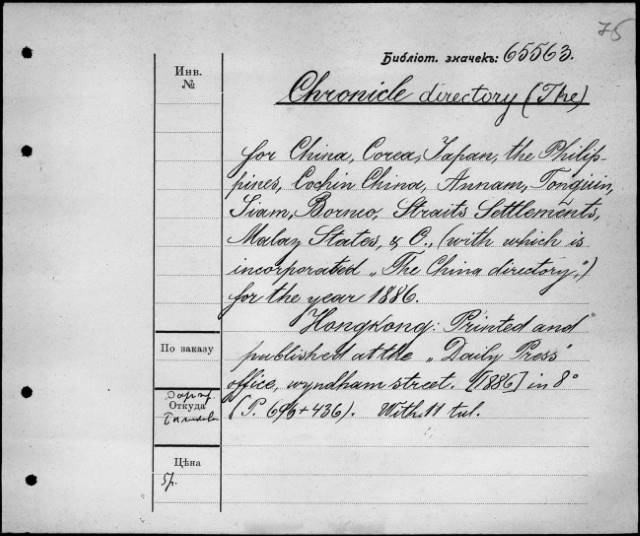 75
Библіот. значекъ: 65563.
Инв.
№
Chronicle directory (The)
for China, Corea, Japan, the Philip-
pines, Cochin China, Annam, Tonquin,
Siam, Borneo, Straits Settlements,
Malay States, & C., (with which is
incorporated „The China directory",)
for the year 1886.
Hongkong: Printed and
По заказу
published at the „Daily Press"
office, wyndham street. [1886] in 8°
Откуда
(P. 696+436). With 11 tal.
Цѣна
5р.